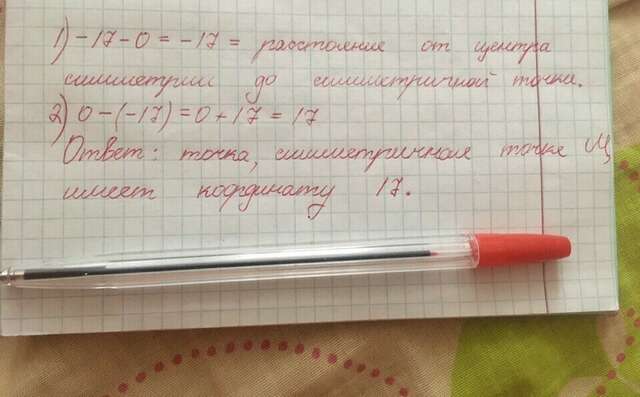 1) -17-0=-17 = расстояние от центра
симметрии до симметричной точки.
2) 0-(-17)=0+17=17
Ответ: точка, симметричная точке Ц,
имеет координату 17.